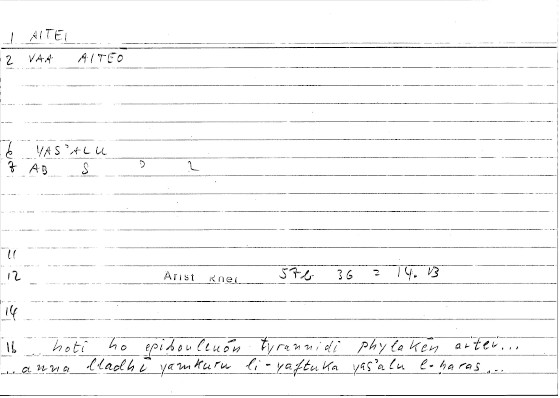 1 AITEI
2 VAA AITEO
6 YAS'ALU
7 AB S ' L
11
12 Arist Rhet 57b 36 = 14.13
14
16 hoti ho epibouleuōn tyrannidi phylakēn aitei...
...anna lladhī yamkuru li-yaftuka yas'alu l-ḥaras...